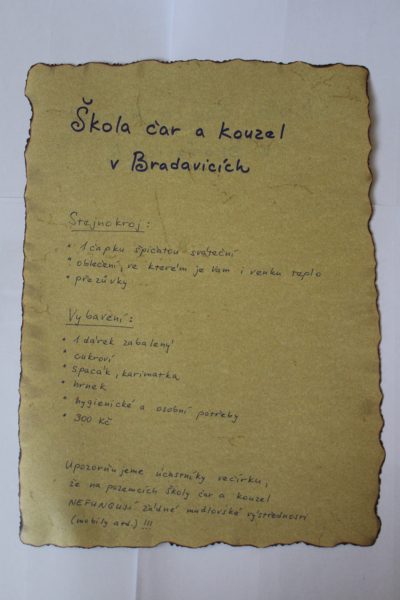 Škola čar a kouzel
v Bradavicích
Stejnokroj:
* 1 čapku špičatou sváteční
* oblečení, ve kterém je Vám i venku teplo
* přezůvky
Vybavení:
* 1 dárek zabalený
* cukroví
* spacák, karimatka
* hrnek
* hygienické a osobní potřeby
* 300 Kč
Upozorňujeme účastníky večírku,
že na pozemcích Školy čar a kouzel
NEFUNGUJÍ žádné mudlovské výstřednosti
(mobily atd.) !!!